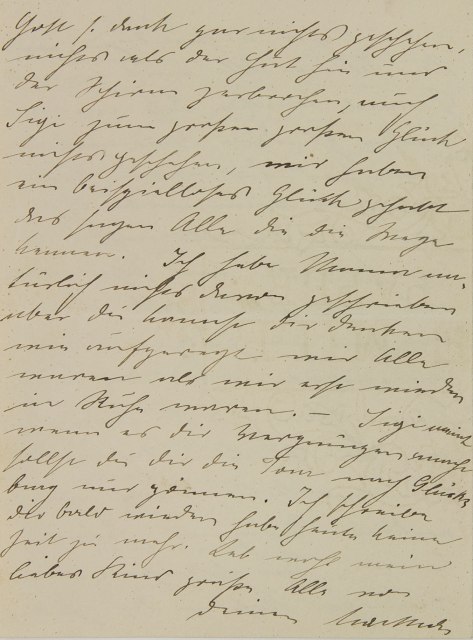 Gott s. dank gar nichts geschehen,
nichts als der Hut hin und
der Schirm zerbrochen, auch
Sigi zum großen großen Glück
nichts geschehen, wir haben
ein beispielloses Glück gehabt
das sagen Alle die die Wege
kennen. Ich habe Mama na-
türlich nichts davon geschrieben
aber du kannst dir denken
wie aufgeregt wir Alle
waren als wir erst wieder
in Ruhe waren. – Sigi meint
wenn es dir Vergnügen macht
sollst du dir die Tour nach Glücks
burg nur gönnen. Ich schreibe
dir bald wieder habe heute keine
Zeit zu mehr. Leb wohl mein
liebes Kind grüße Alle von
deiner